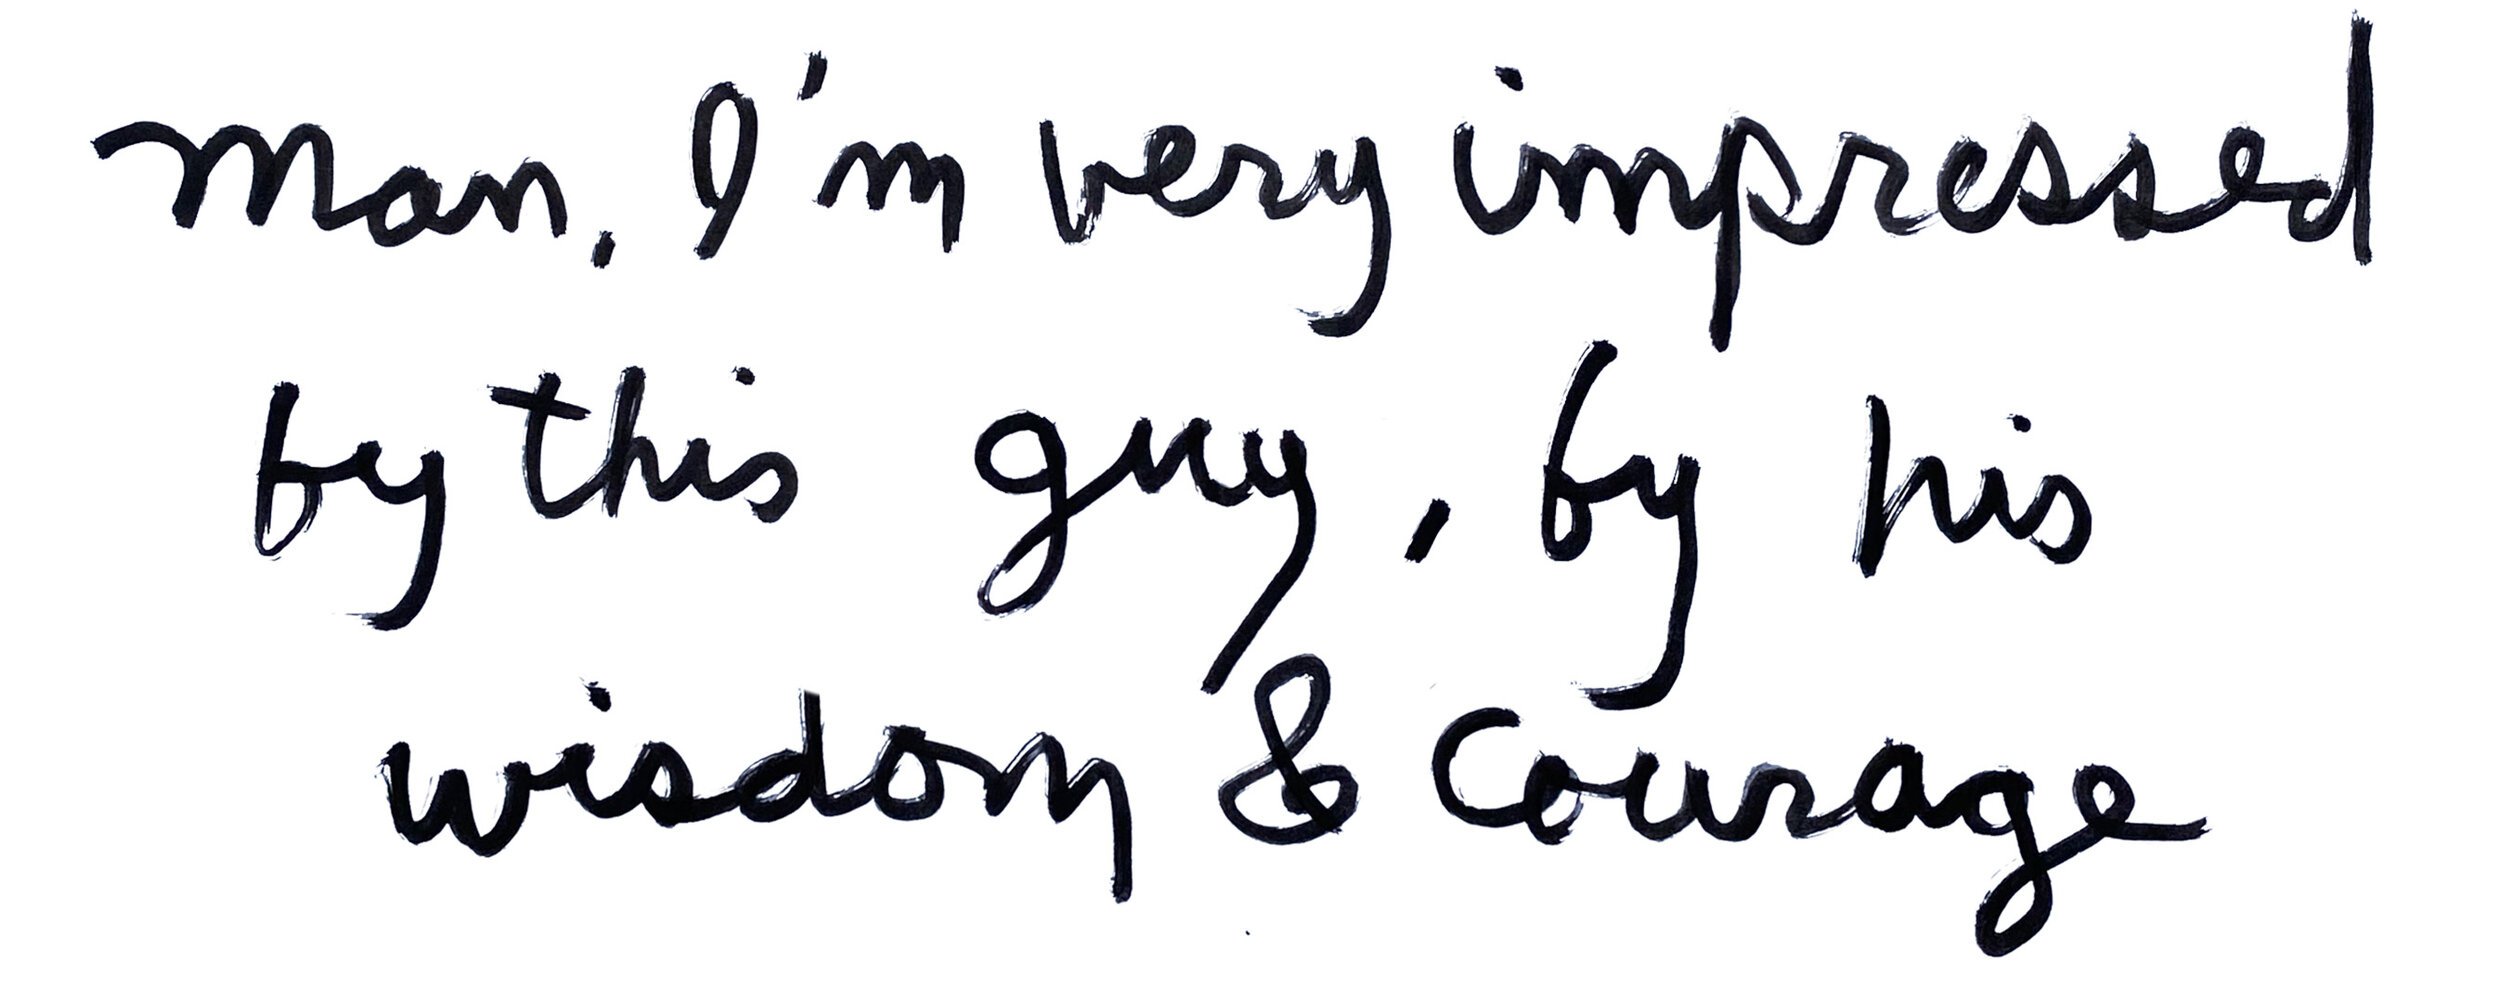 Man, I'm very impressed
by this guy, by his
wisdom & courage